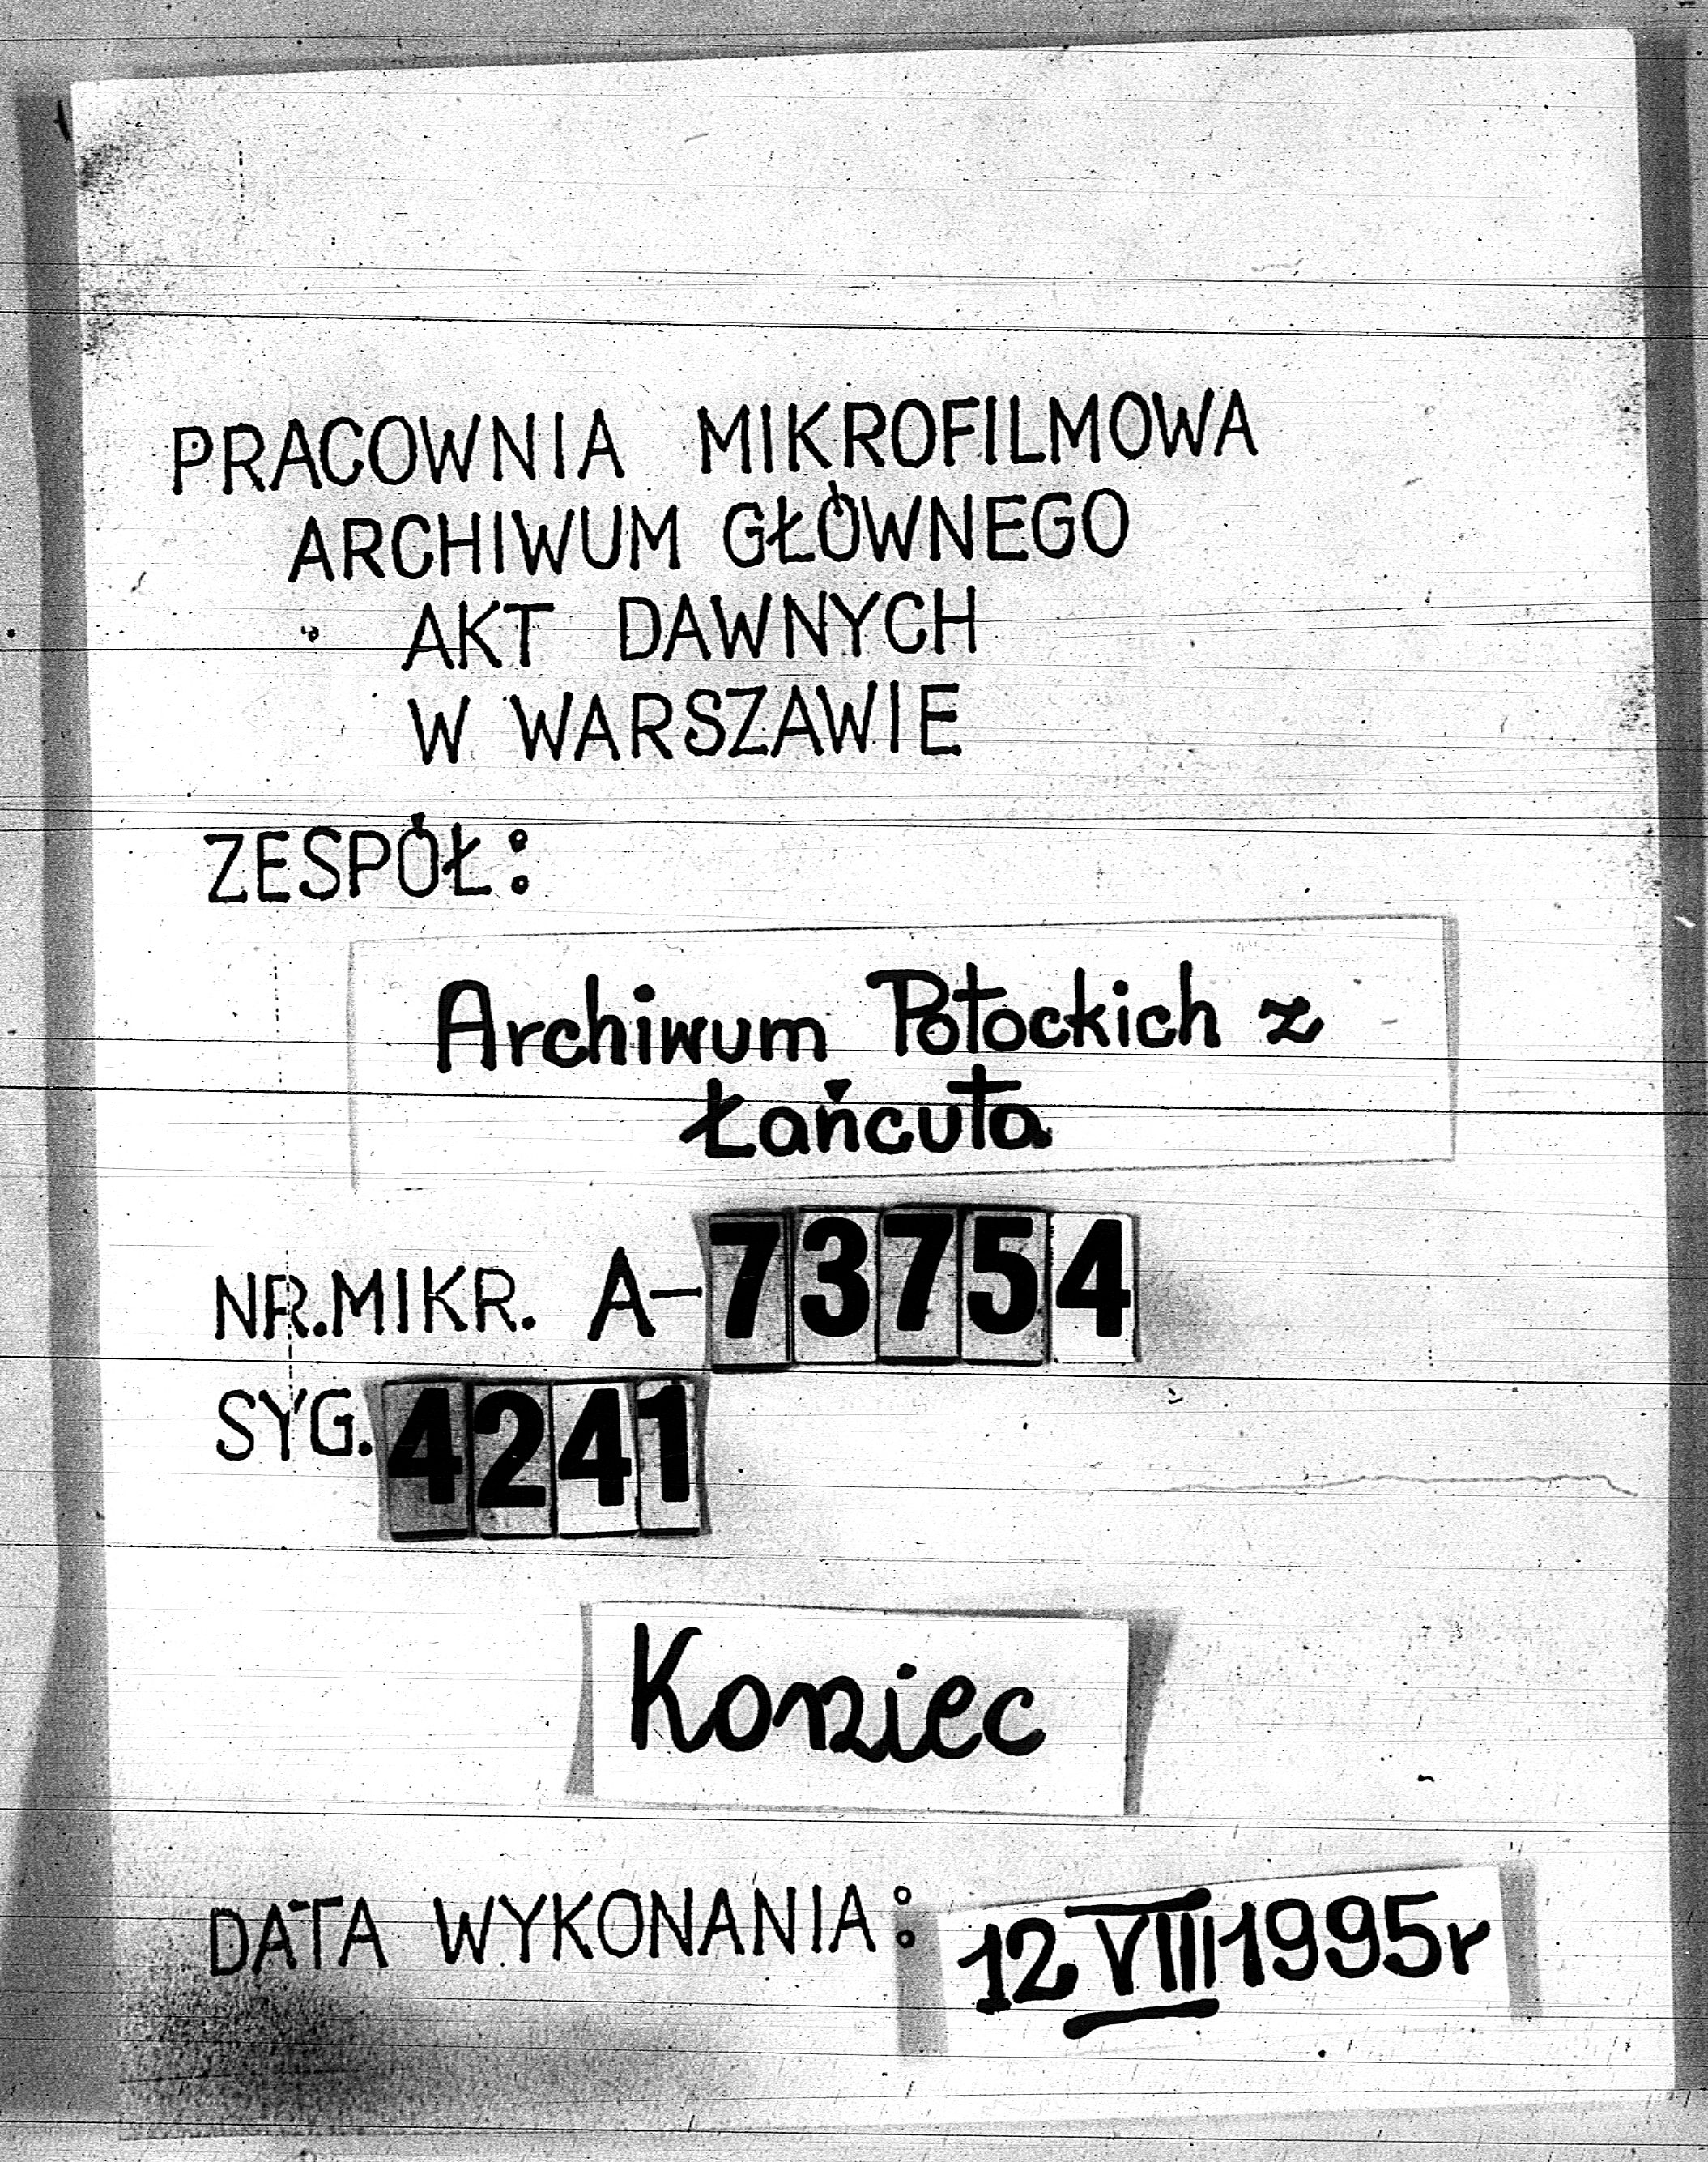 PRACOWNIA MIKROFILMOWA
ARCHIWUM GŁÓWNEGO
AKT DAWNYCH
W WARSZAWIE
ZESPÓŁ:
Archiwum Potockich z
Łańcuta
NR.MIKR. A-73754
SYG. 4241
Koniec
DATA WYKONANIA: 12 VIII 1995r